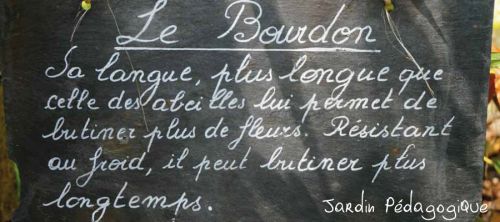 Le Bourdon
Sa langue, plus longue que
celle des abeilles lui permet de
butiner plus de fleurs. Résistant
au froid, il peut butiner plus
longtemps.
Jardin PédagogiQue